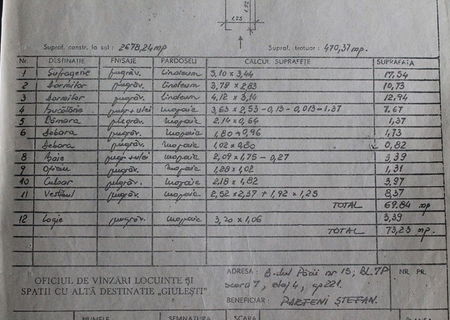 1,25
Supraf. constr. la sol : 2678,24 mp.
Supraf. trotuar : 470,37 mp.
Nr. DESTINAȚIE FINISAJE PARDOSELI CALCUL SUPRAFEȚE SUPRAFAȚA
1 Sufragerie zugrăv. Linoleum 5,10 x 3,44 17,54
2 Dormitor zugrăv. Linoleum 3,79 x 2,83 10,73
3 Dormitor zugrăv. Linoleum 4,12 x 3,14 12,94
4 Bucătărie zugr+ulei mozaic 3,63 x 2,53 - 0,13 - 0,013 - 1,37 7,67
5 Cămara zugrăv. mozaic 2,14 x 0,64 1,37
6 Debara zugrăv. mozaic 1,80 x 0,96 1,73
Debara zugrăv. mozaic 1,02 x 0,80 0,82
8 Baie zugr+ulei mozaic 2,09 x 1,75 - 0,27 3,39
9 zugrăv. mozaic 1,28 x 1,02 1,31
10 Culoar zugrăv. mozaic 2,18 x 1,82 3,97
11 Vestibul zugrăv. mozaic 2,52 x 2,37 + 1,92 x 1,25 8,37
TOTAL 69,84 mp
12 Logie zugrăv. mozaic 3,20 x 1,06 3,39
TOTAL 73,23 mp.
OFICIUL DE VÎNZĂRI LOCUINȚE ȘI
SPAȚII CU ALTĂ DESTINAȚIE „GIULEȘTI"
ADRESA : B-dul Păcii nr 15; BL.7P
scara 7, etaj 4, ap 221.
BENEFICIAR : PARTENI ȘTEFAN.
NR. PR.
NUMELE SEMNĂTURA SCARA